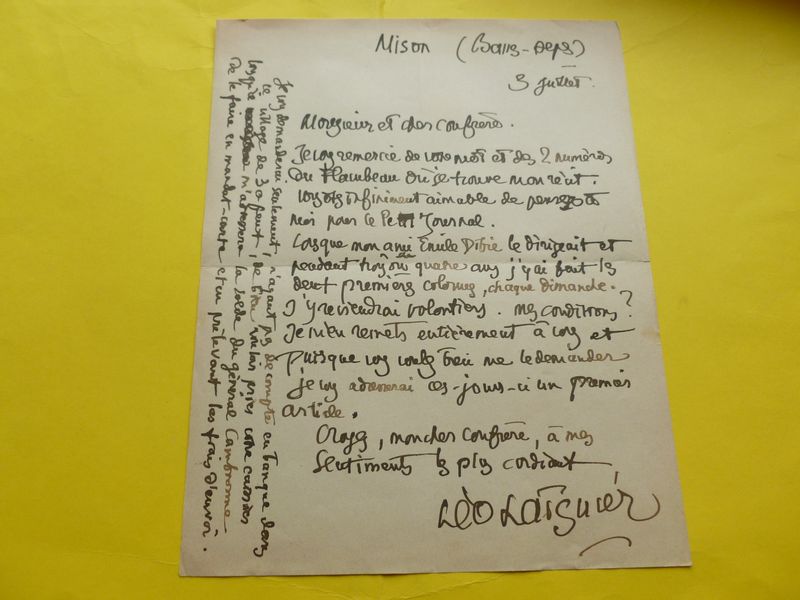 Mison (Basses-Alpes)
3 Juillet.
Monsieur et cher confrère.
Je vous remercie de votre mot et des 2 numéros
du Flambeau où se trouve mon récit.
Vous êtes infiniment aimable de penser à
moi pour le Petit Journal.
Lorsque mon ami Emile le dirigeait et
pendant trois ou quatre ans j'y ai fait les
deux premières colonnes, chaque dimanche.
J'y reviendrai volontiers. Mes conditions?
Je m'en remets entièrement à vous et
puisque vous voulez bien me le demander
je vous adresserai ces-jours-ci un premier
article.
Croyez, mon cher confrère, à mes
sentiments les plus cordiaux
Léo Larguier
Je vous demanderai seulement, n'ayant pas de compte en banque dans
ce village de 30 feux, de bien vouloir prier votre caissier
lorsqu'il m'adressera la solde du général Cambronne
de le faire en mandat-carte et en prélevant les frais d'envoi.